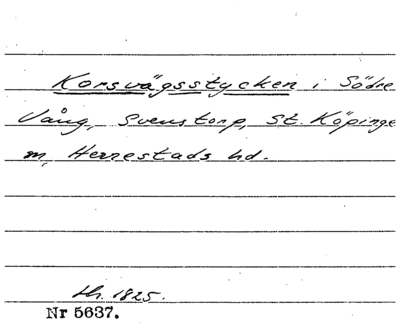 Korsvägsstycken i Södre
Vång, Svenstorp, St. Köpinge
Herrestads hd.
1825.
Nr 5637.